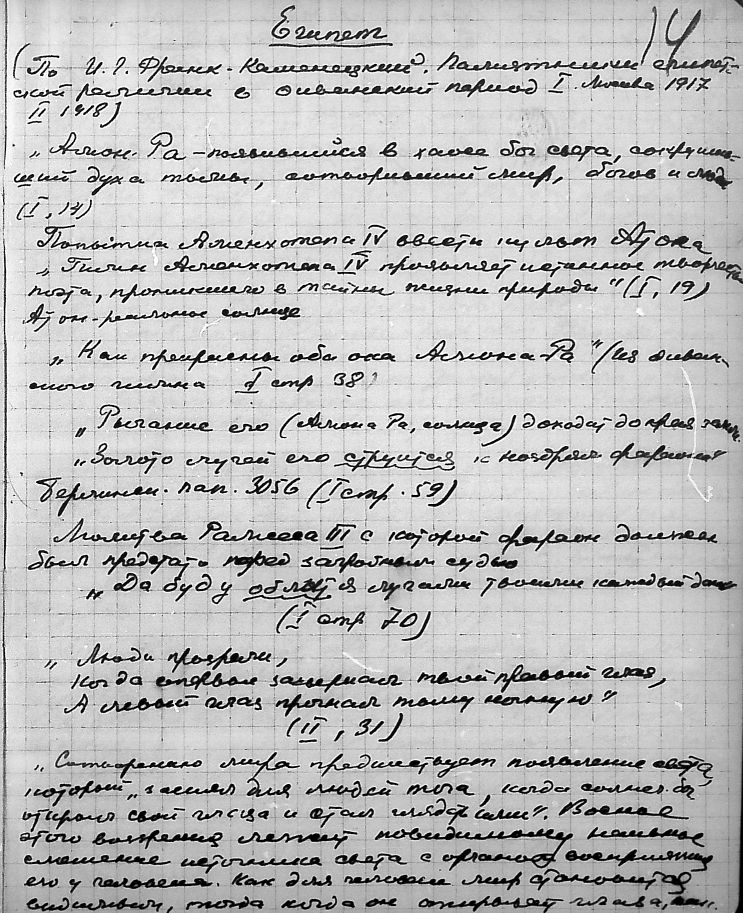 Египет
14
(По И.Г. Франк-Каменецкий. Памятники египет-
ской религии в Фиванский период I. Москва 1917
II 1918)
„Амон-Ра – появившийся в хаосе бог света, сокрушив-
ший духа тьмы, сотворивший мир, богов и людей
(I, 14)
Попытка Аменхотепа IV ввести культ Атона
„Гимн Аменхотепа IV проявляет истинное творчество
поэта, проникшего в тайны жизни природы" (I, 19)
Атон-реальное солнце
„Как прекрасны оба ока Амона-Ра" (из фиван-
ского гимна I стр 38)
„Рыгание его (Амона Ра, солнца) доходит до края земли.
„Золото лучей его струится к ноздрям фараона"
Берлинск. пап. 3056 (I стр. 59)
Молитва Рамсеса III с которой фараон должен
был предстать перед загробным судью
„Да буду облит я лучами твоими каждый день
(I стр 70)
„Люди прозрели,
Когда впервые засверкал твой правый глаз,
А левый глаз прогнал тьму ночную"
(II, 31)
„Сотворению мира предшествует появление света,
который „засиял для людей тога, когда солнце бы
открыло свои глаза и стал глядеть ими". В основе
этого воззрения лежит повидимому наивное
смешение источника света с органом восприятия
его у человека. Как для человека мир становится
видимым, тогда когда он открывает глаза,